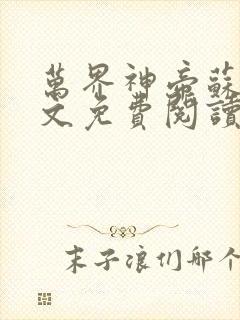 萬界神帝蘇
文免費閱讀
末子浪们哪个